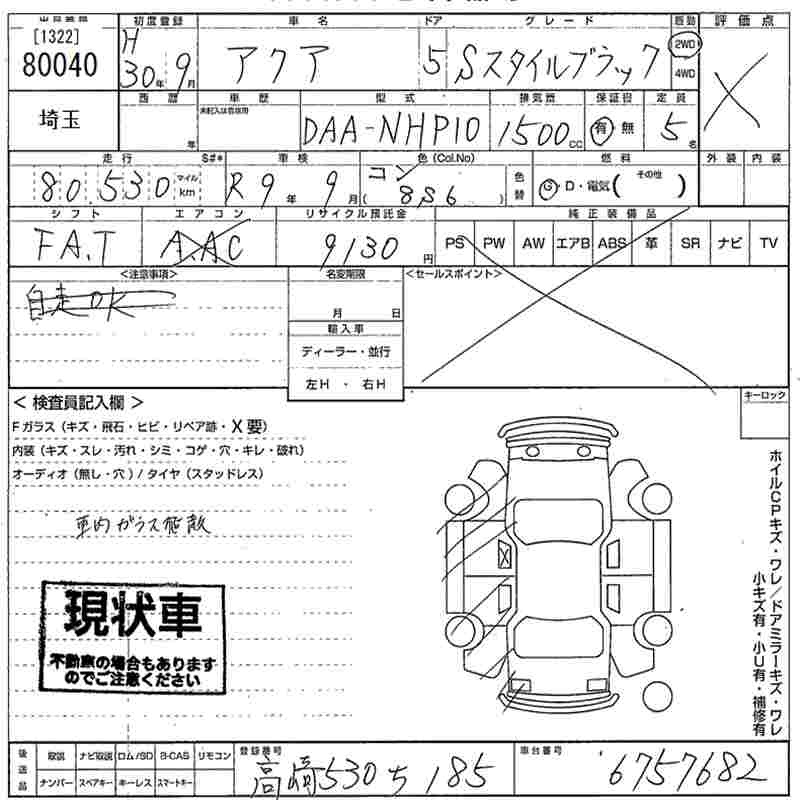 出品番号 初度登録 車名 ドア グレード 駆動 評価点
[1322]
80040 H 30年9月 アクア 5 Sスタイルブラック 2WD 4WD
埼玉 西歴 車歴 型式 排気量 保証書 定員
年 未記入は自家用 DAA-NHP10 1500cc 有・無 5名
走行 S#* 車検 色(Col.No) 燃料 外装 内装
80,530 マイル km R9年9月 コン ( 8S6 ) 色替 G・D・電気( その他 )
シフト エアコン リサイクル預託金 純正装備品
FA.T A.AC 9130円 PS PW AW エアB ABS 革 SR ナビ TV
<注意事項> 名変期限 <セールスポイント>
自走OK
月 日
輸入車
ディーラー・並行
左H ・ 右H
< 検査員記入欄 > キーロック
Fガラス(キズ・飛石・ヒビ・リペア跡・X要)
内装(キズ・スレ・汚れ・シミ・コゲ・穴・キレ・破れ)
オーディオ(無し・穴)/タイヤ(スタッドレス)
車内ガラス飛散
現状車
不動車の場合もあります
のでご注意ください
ホイルCPキズ・ワレ/ドアミラーキズ・ワレ
小キズ有・小U有・補修有
後送品 取説 ナビ取説 ロム/SD B-CAS リモコン 登録番号 車台番号
ナンバー スペアキー キーレス スマートキー 高崎530ち185 6757682